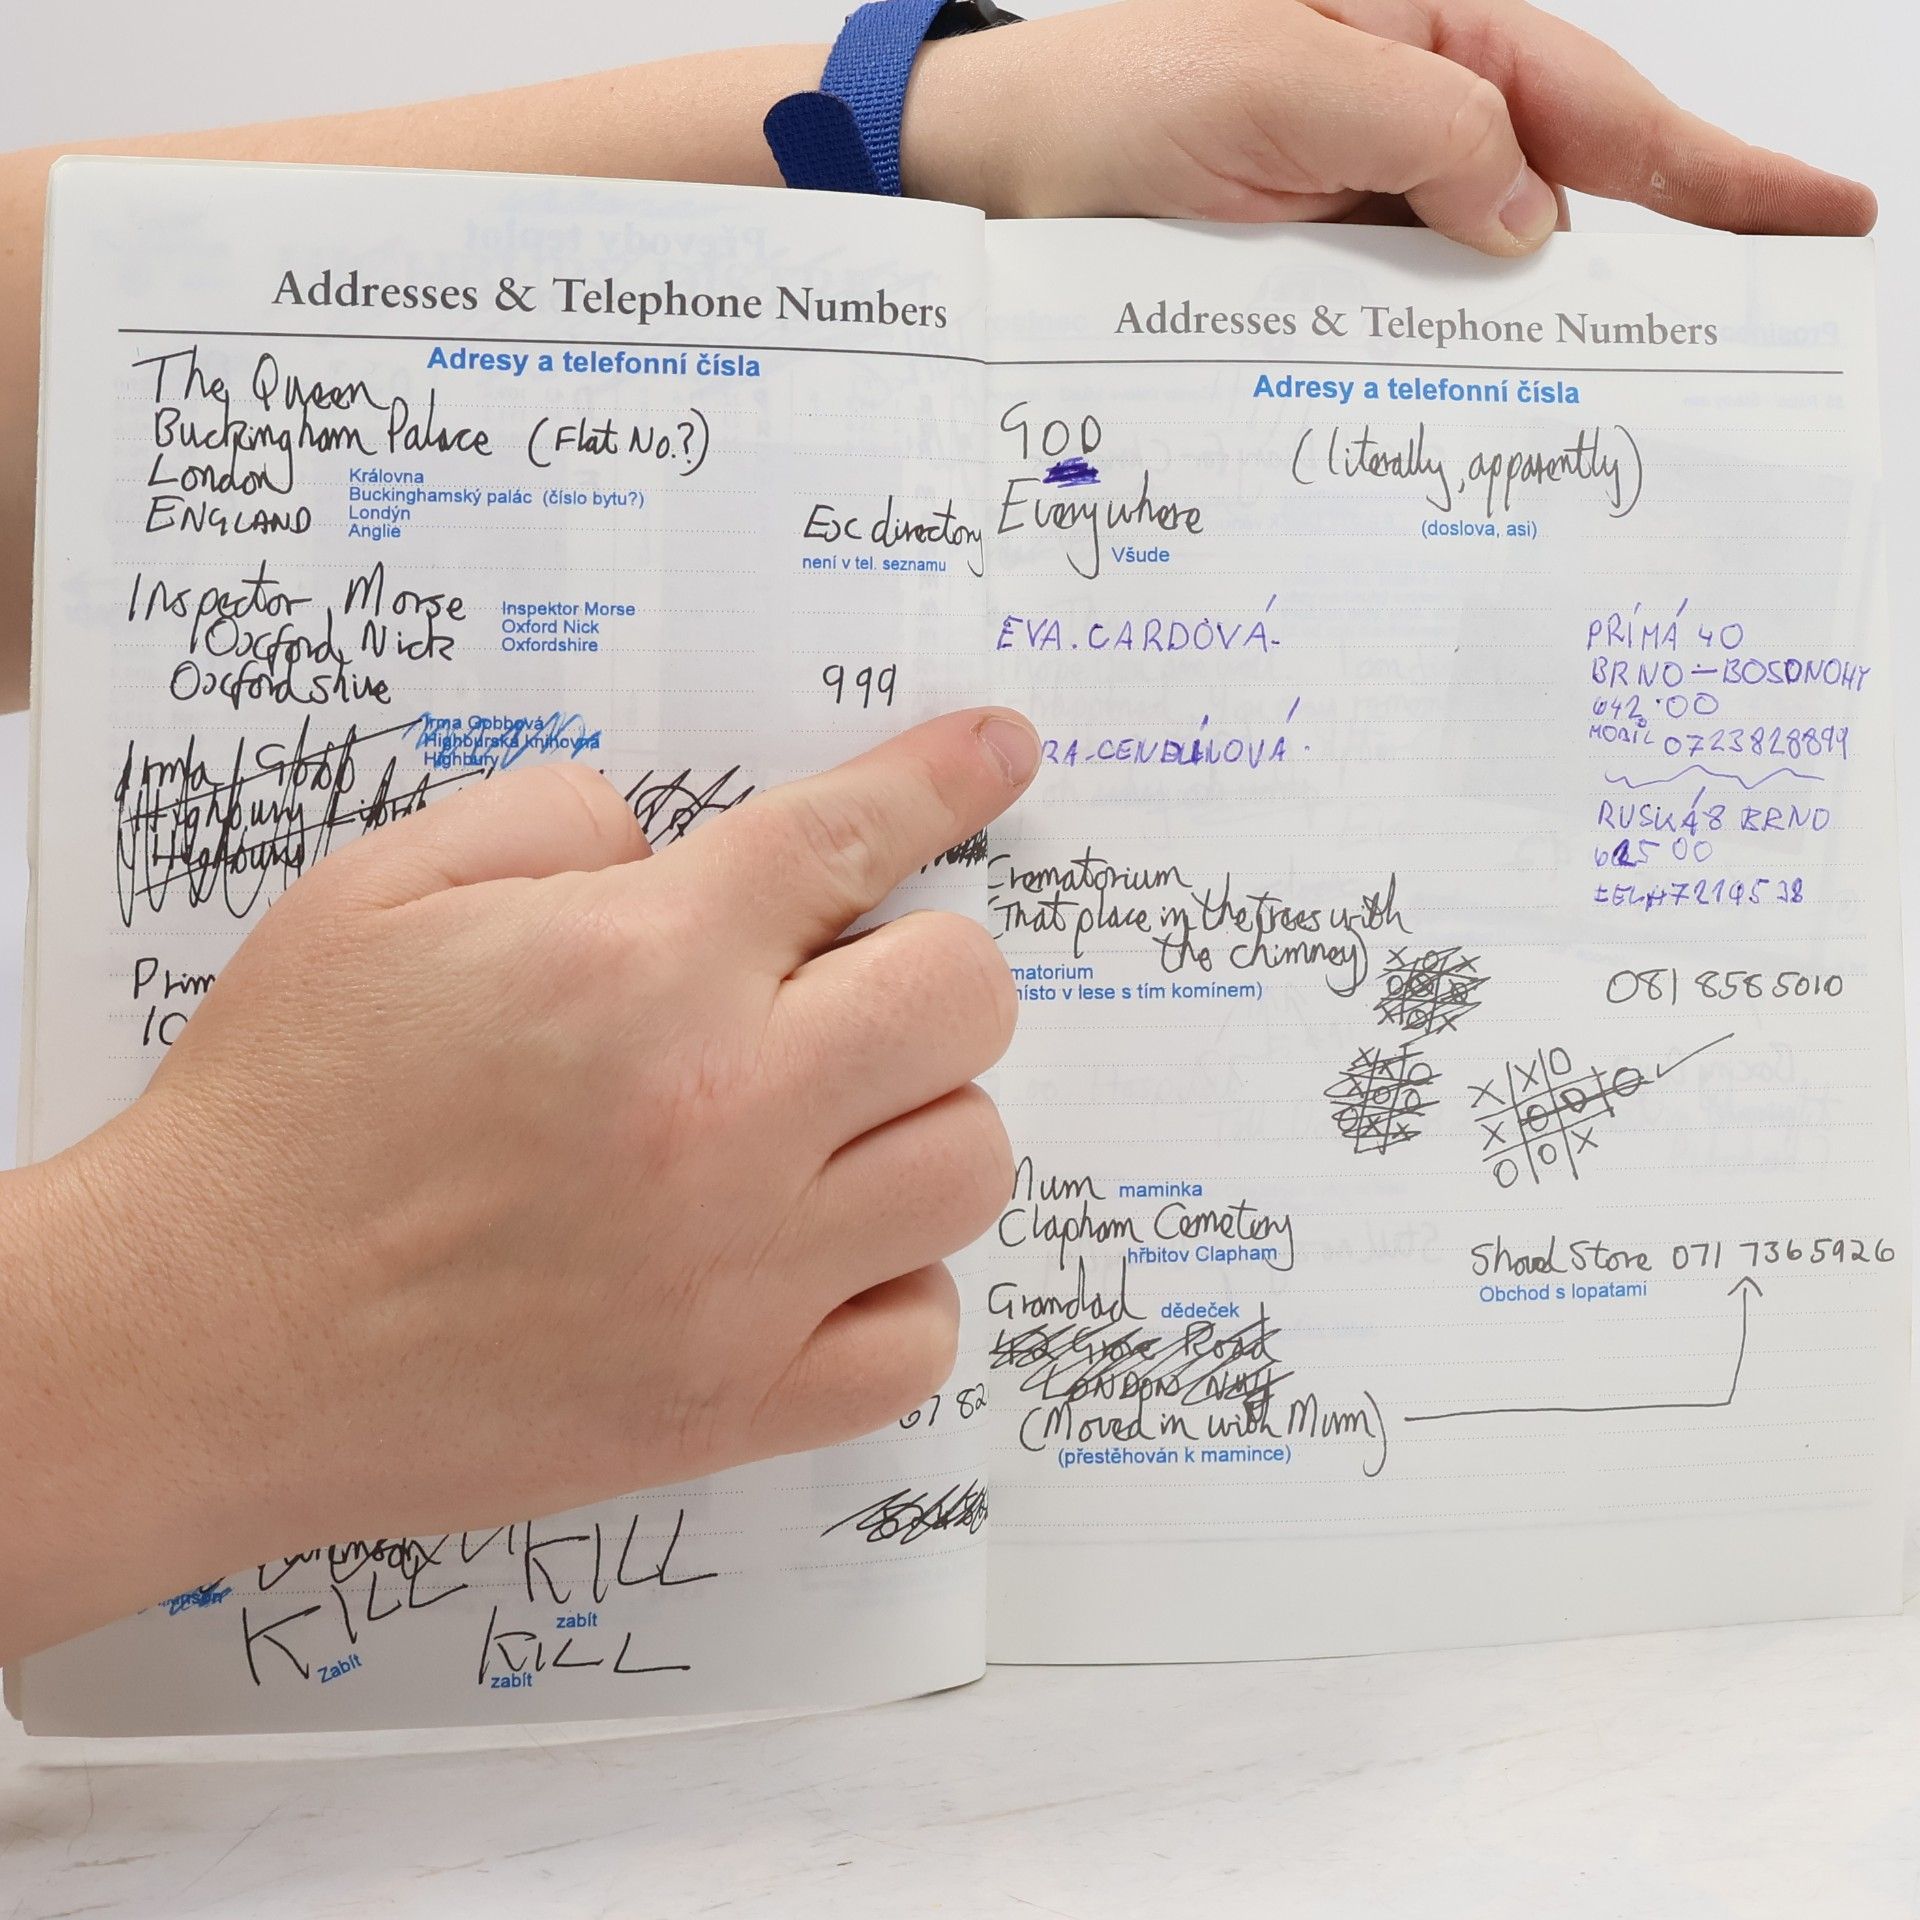 Addresses & Telephone Numbers
Adresy a telefonní čísla
The Queen
Buckingham Palace (Flat No.?)
London
ENGLAND
Královna
Buckinghamský palác (číslo bytu?)
Londýn
Anglie
Ex directory
není v tel. seznamu
Inspector Morse
Oxford Nick
Oxfordshire
Inspektor Morse
Oxford Nick
Oxfordshire
999
Irma Gobb
Highbury
Highbury
Irma Gobbová
Highburská knihovna
Highbury
Prim
10
67 82
KILL KILL
zabít
Zabít
KILL
zabít
Addresses & Telephone Numbers
Adresy a telefonní čísla
GOD (literally, apparently)
Everywhere
(doslova, asi)
Všude
EVA. CARDOVÁ-
PŘÍMÁ 40
BRNO-BOSONOHY
642 00
MOBIL 0723828899
RUSKÁ 8 BRNO
00
Crematorium
(That place in the trees with
the chimney)
matorium
místo v lese s tím komínem)
081 858 5010
X O X
O X O
X O X
X X O
X O O
O X X
X X O
X O O O
X O X
O
Mum maminka
Clapham Cemetery
hřbitov Clapham
Shovel Store 071 7365926
Obchod s lopatami
Grandad dědeček
Grove Road
LONDON
(Moved in with Mum)
(přestěhován k mamince)